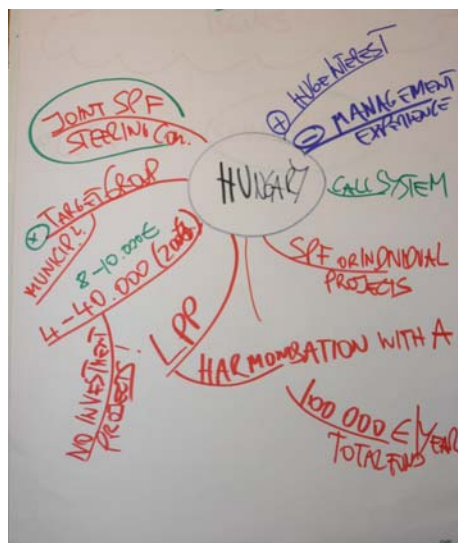 HUNGARY
⊕ HUGE INTEREST
⊖ MANAGEMENT
EXPERIENCE
CALL SYSTEM
SPF OR INDIVIDUAL
PROJECTS
HARMONISATION WITH A
100 000 € / YEAR
TOTAL FUND
LPP
8-10.000€
4-40.000
NO INVESTMENT
PROJECTS!
⊕ TARGET GROUP
MUNICIP.
JOINT SPF
STEERING COM.